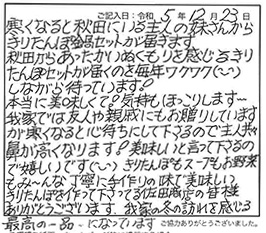 ご記入日:令和 5年 12月 23日
寒くなると秋田にいる主人の妹さんから
きりたんぽ鍋セットが届きます
秋田からあったかいぬくもりを感じるきり
たんぽセットが届くのを毎年ワクワク(~~)
しながら待っています!
本当に美味しくて!気持もほっこりします…
我家では友人や親戚にもお贈りしています
が寒くなると心待ちにして下さるので主人も
鼻が高くなります!美味しいと言って下さるの
で嬉しいです(~~)きりたんぽもスープもお野菜
もみ~んな丁寧に手作りの味で美味しい
きりたんぽを作って下さってる佐田商店の皆様
ありがとうございます 我家の冬の訪れを感じる
最高の一品 になっています
ご協力ありがとうございました。